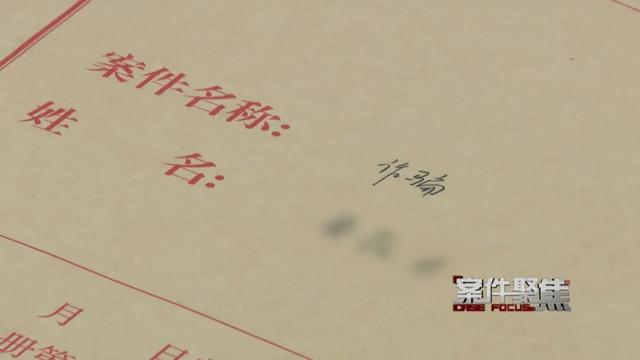 案件名称: 诈骗
姓 名:
月 日
册第
案件聚焦
CASE FOCUS